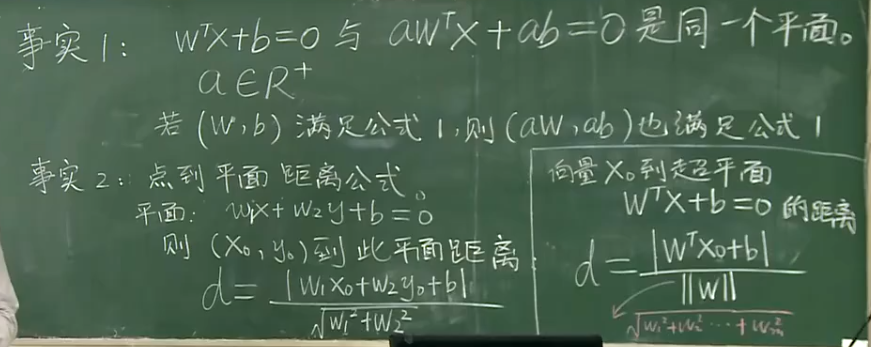 事实1: WᵀX+b=0 与 aWᵀX+ab=0 是同一个平面。
a∈R⁺
若 (W,b) 满足公式1,则(aW,ab)也满足公式1
事实2: 点到平面距离公式
平面: w₁x+w₂y+b=0
则 (x₀,y₀)到此平面距离
d=|w₁x₀+w₂y₀+b|/√(w₁²+w₂²)
向量X₀到超平面
WᵀX+b=0 的距离
d=|WᵀX₀+b|/‖W‖
√(w₁²+w₂²…+wₘ²)